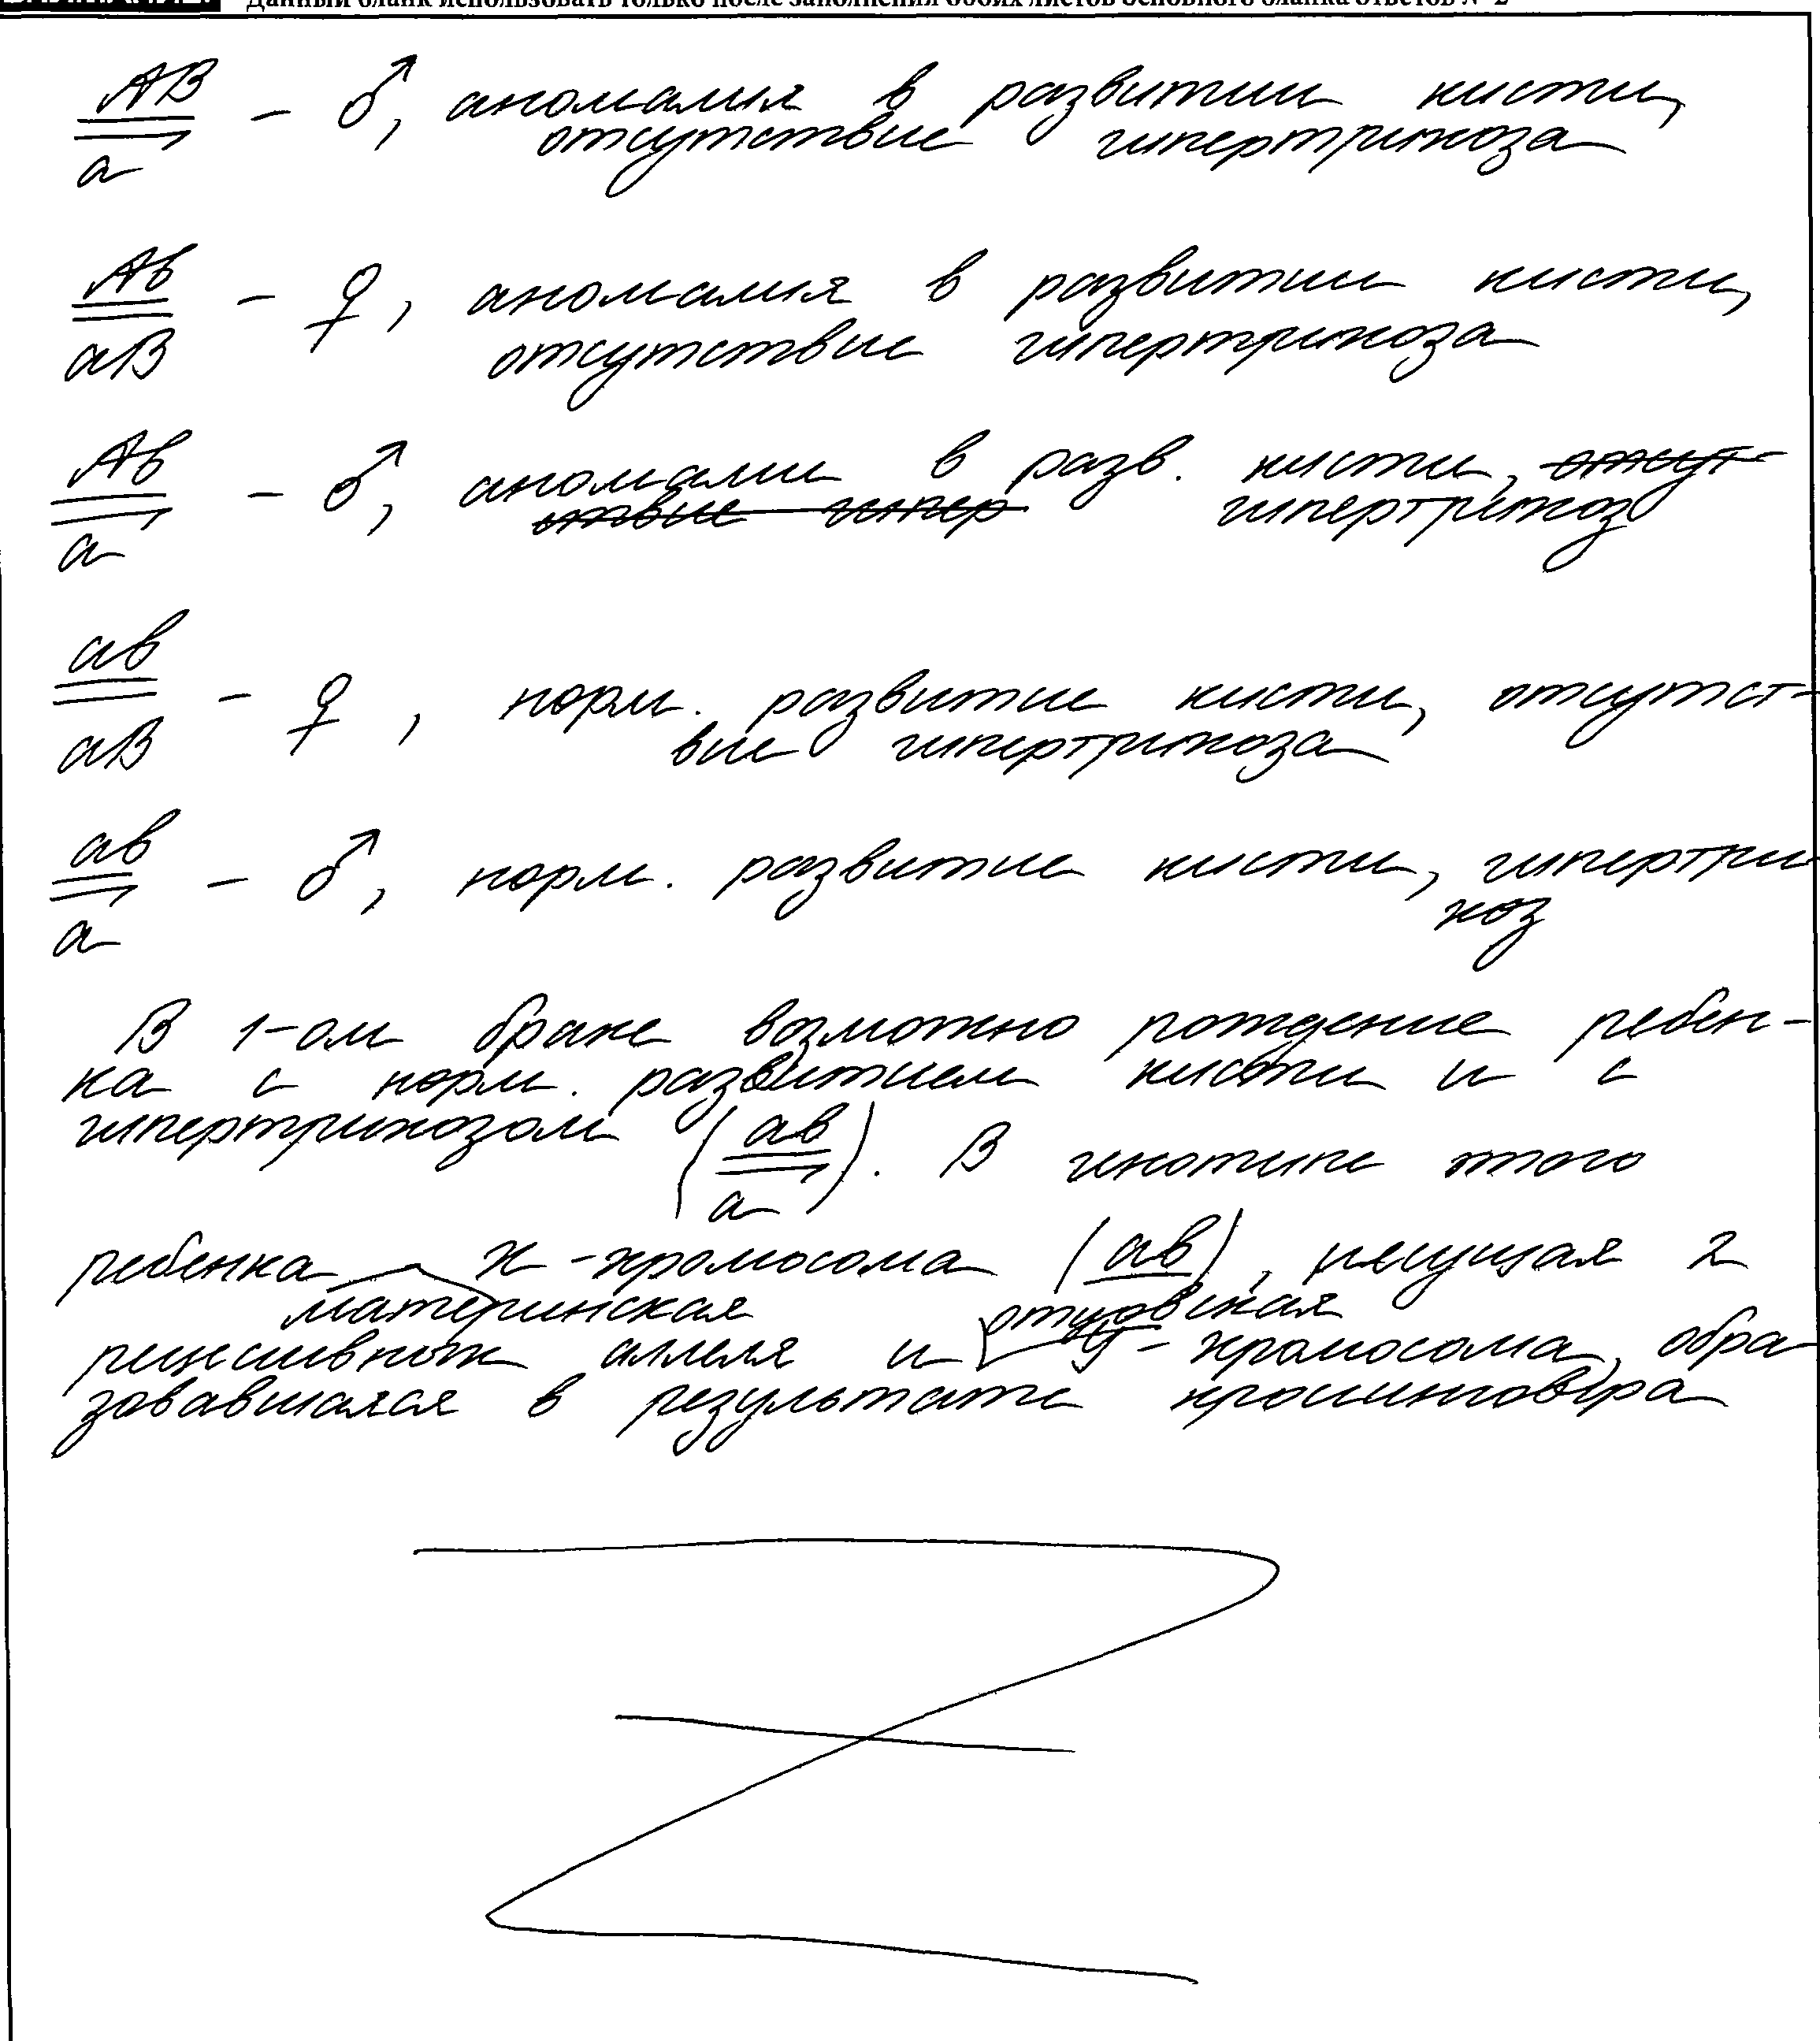 Данный бланк использовать только после заполнения обоих листов основного бланка ответов № 2
AB
— ♂, аномалия в развитии кисти,
a
отсутствие гипертрихоза
Ab
— ♀, аномалия в развитии кисти,
aB
отсутствие гипертрихоза
Ab
— ♂, аномалии в разв. кисти, отсут-
a
ствие гипер гипертрихоз
ab
— ♀, норм. развитие кисти, отсутст-
aB
вие гипертрихоза
ab
— ♂, норм. развитие кисти, гипертри
a
хоз
В 1-ом браке возможно рождение ребен-
ка с норм. развитием кисти и с
гипертрихозом (ab/a). В генотипе этого
ребенка х-хромосома (ab), несущая 2
материнская отцовская
рецессивных аллеля и у-хромосома, обра
зовавшаяся в результате кроссинговера